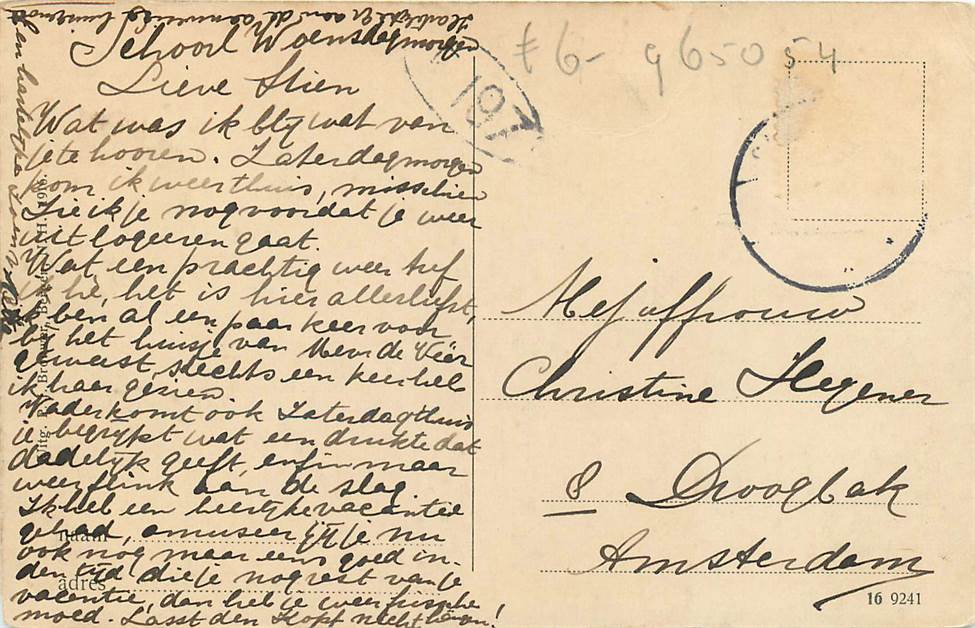 Schoorl Woensdag
Lieve Stien
Wat was ik bly wat van
je te hooren. Zaterdagmorgen
kom ik weer thuis, misschien
zie ik je nog voordat je weer
uit logeeren gaat.
Wat een prachtig weer tref
ik he, het is hier allerliefst,
ik ben al een paar keer voor
by het huisje van Mevr de Veer
geweest, slechts een keer heb
ik haar gezien.
Vader komt ook Zaterdag thuis
je begrypt wat een drukte dat
dadelyk geeft, enfin maar
weer flink aan de slag.
Ik heb een heerlyke vacantie
gehad, amuseer jy je nu
ook nog maar eens goed in-
den tyd die je nog rest van je
vacantie, dan heb je weer frissche
moed. Lasst den Kopf nicht hängen!
een hartelyke zoen
Hartelyk
107
£ 6- 9650 54
Mejuffrouw
Christine Hegener
8 Droogbak
Amsterdam
naam
adres
16 9241